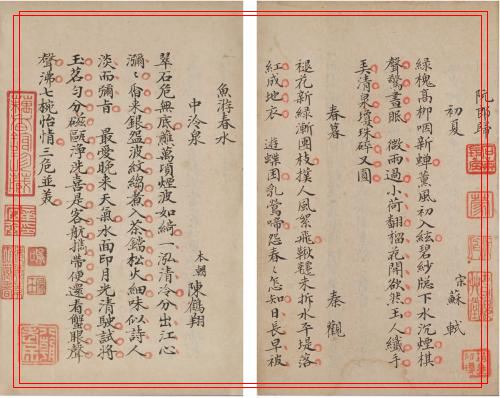 阮郎歸
初夏 宋 蘇軾
綠槐高柳咽新蟬薰風初入絃碧紗牕下水沉煙棋
聲驚晝眠 微雨過小荷翻榴花開欲然玉人纖手
弄清泉瓊珠碎又圓
春暮 秦觀
褪花新綠漸團枝撲人風絮飛鞦韆未拆水平堤落
紅成地衣 遊蝶困乳鶯啼怨春〻怎知日長早被
魚游春水
中泠泉
本朝 陳鶴翔
翠石危無底蘸萬頃煙波如綺一泓清冷分出江心
瀰〻俏來銀盌波紋縐煮入茶鐺松火細味似詩人
淡而彌旨 最愛晚來天氣水面印月光清駛試將
玉茗勻分磁甌淨洗喜是客航攜帶便還看蟹眼聲
聲沸七椀怡情三危並美